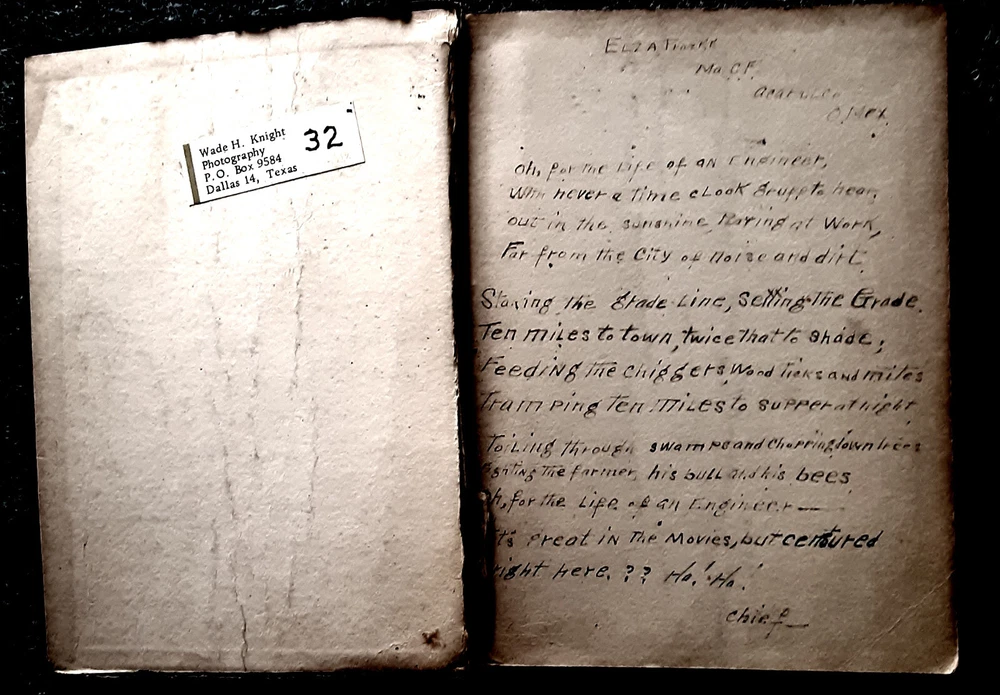 Wade H. Knight
Photography
P.O. Box 9584
Dallas 14, Texas
32
ELZA
Mo. O.F.
Mex.
Oh, for the Life of an Engineer,
With never a time cLock to hear,
out in the sunshine, at Work,
Far from the City of noise and dirt.
Staking the grade Line, Setting the Grade,
Ten miles to town, twice that to shade;
Feeding the chiggers, Wood Ticks and mites
Tramping Ten MiLes to supper at night
ToiLing through swamps and chopping down trees
Fighting The farmer, his buLL and his bees
Oh, for the Life of an Engineer —
It's great in The Movies, but censured
right here. ?? Ha! Ha!
Chief